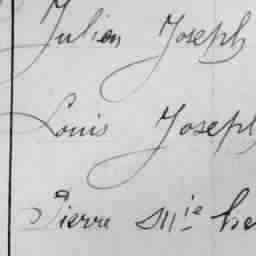 Julien Joseph
Louis Joseph
Pierre Mie he